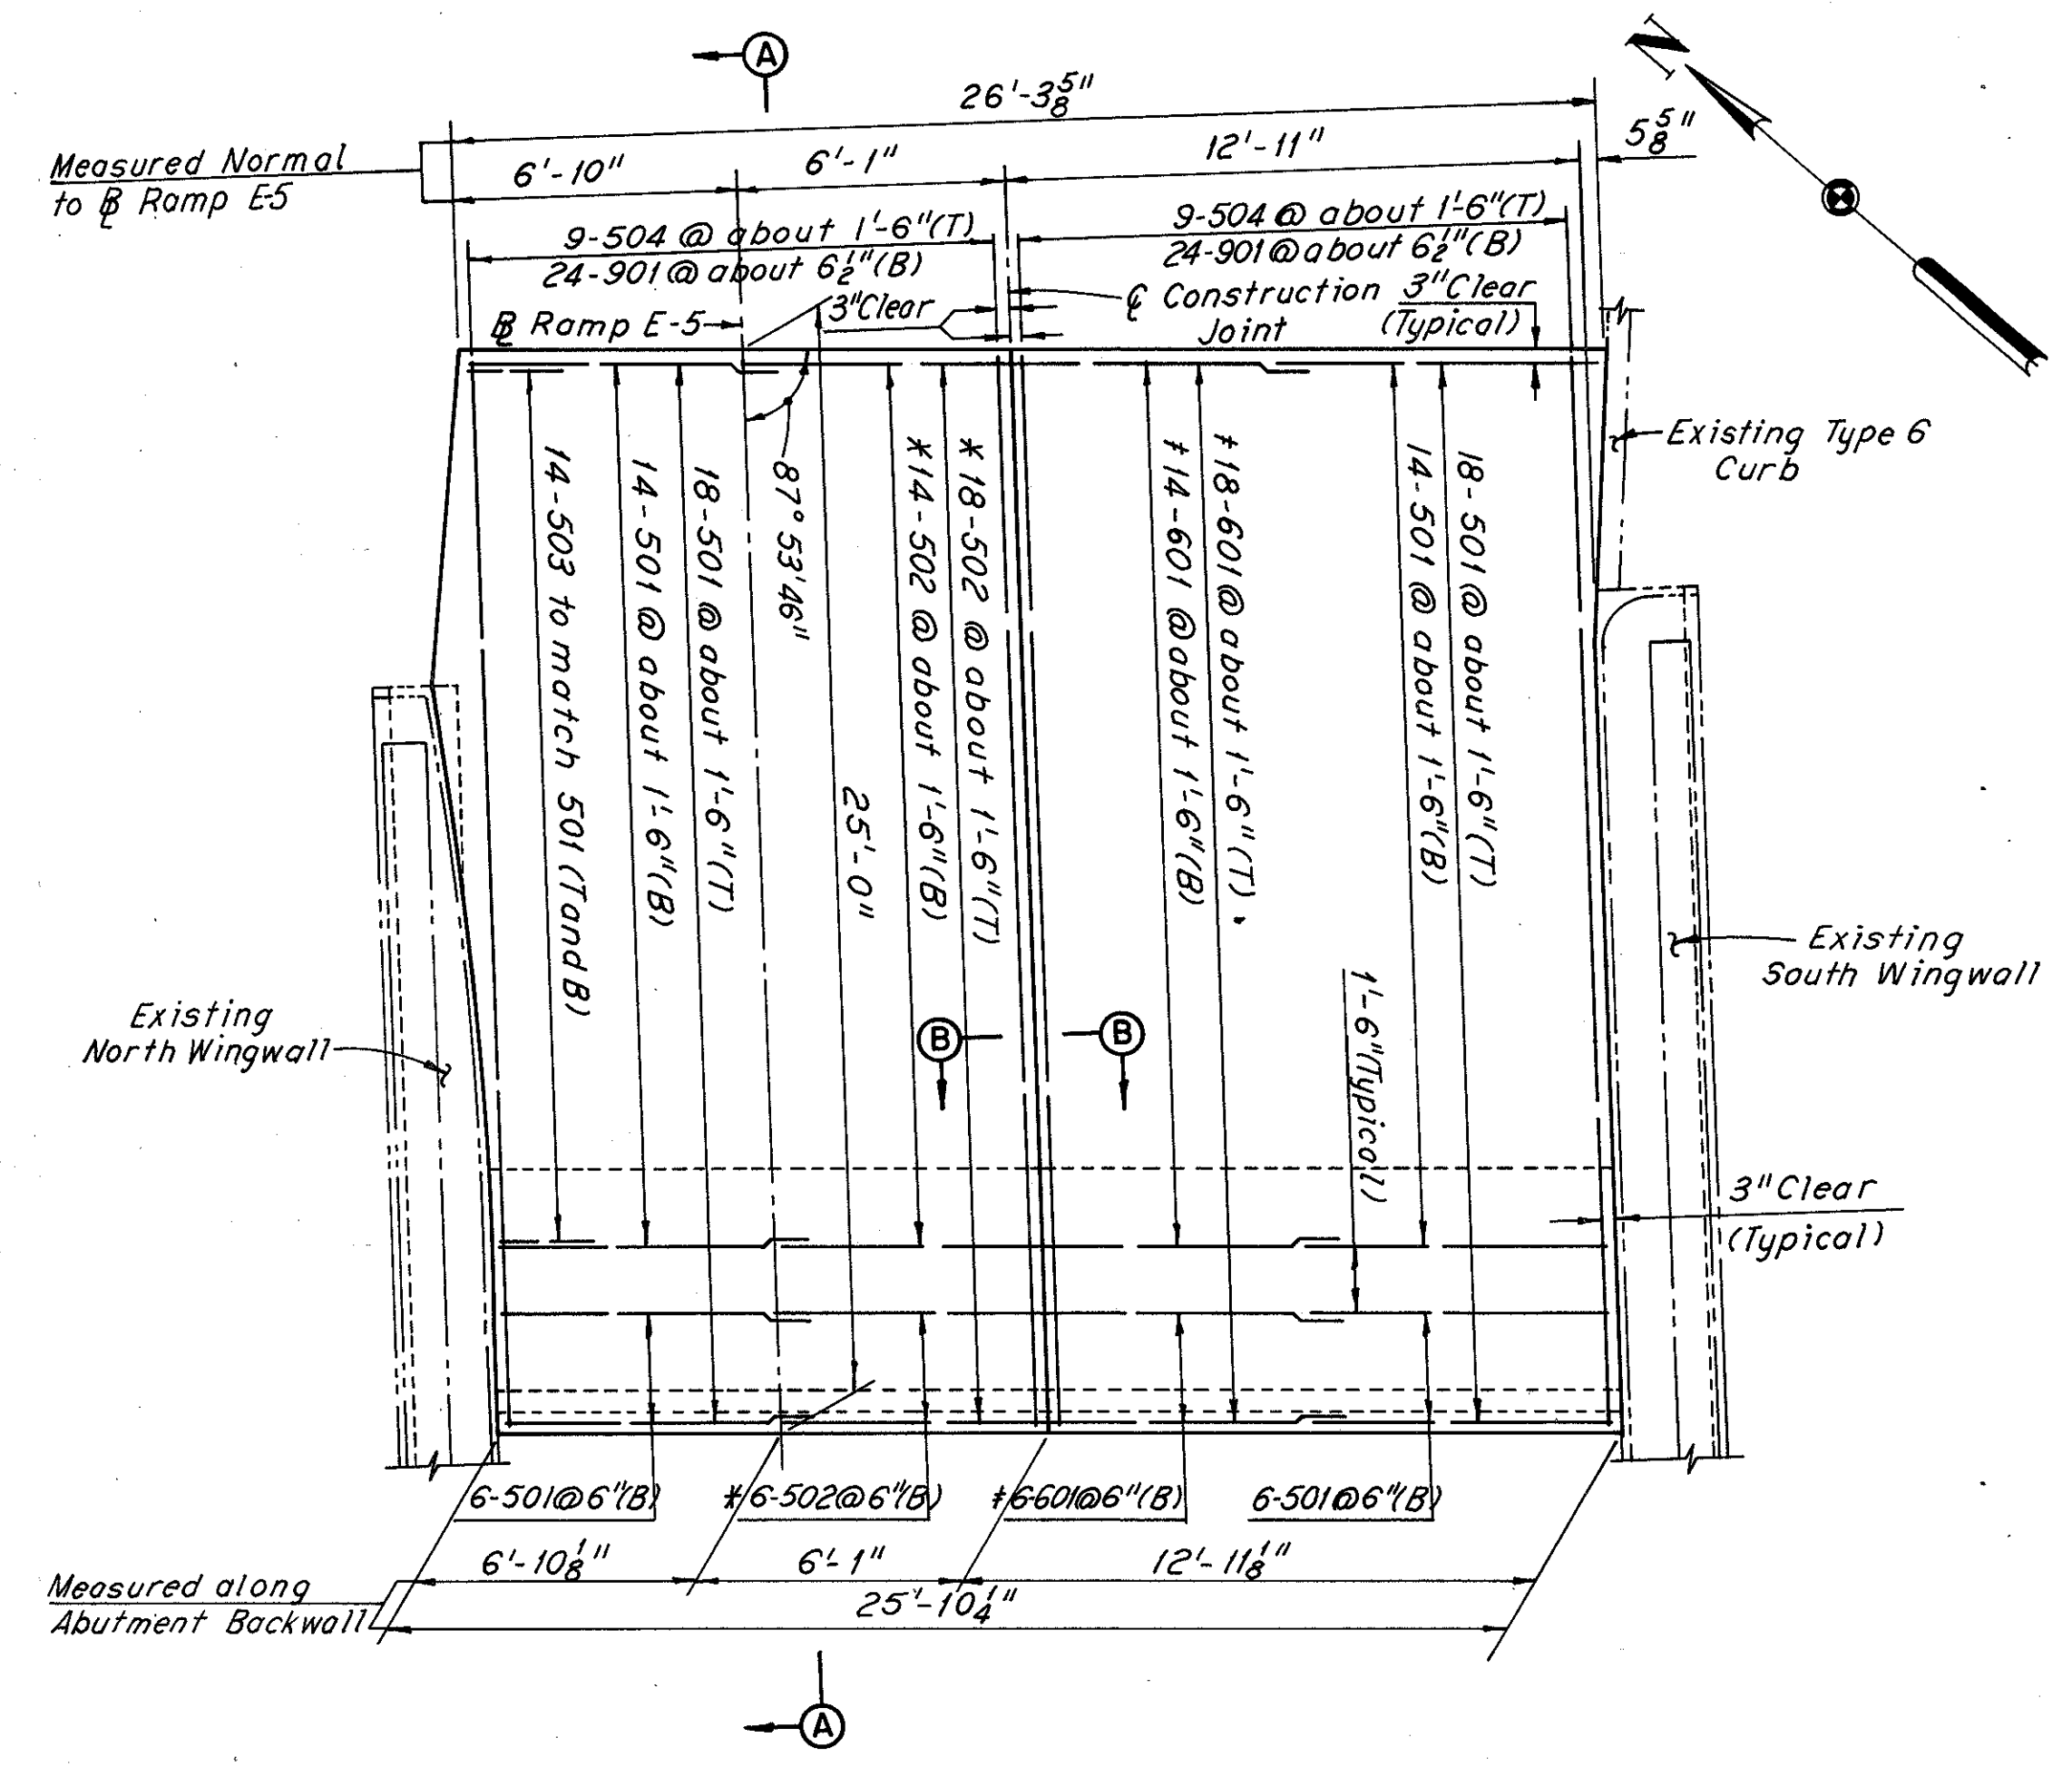 A
N
26'-3 5/8"
Measured Normal
to BL Ramp E-5
6'-10"
6'-1"
12'-11"
5 5/8"
9-504 @ about 1'-6"(T)
24-901 @ about 6 1/2"(B)
9-504 @ about 1'-6"(T)
24-901 @ about 6 1/2"(B)
BL Ramp E-5
3"Clear
CL Construction
Joint
3"Clear
(Typical)
Existing Type 6
Curb
14-503 to match 501 (T and B)
14-501 @ about 1'-6"(B)
18-501 @ about 1'-6"(T)
87° 53' 46"
25'-0"
*14-502 @ about 1'-6"(B)
*18-502 @ about 1'-6"(T)
‡14-601 @ about 1'-6"(B)
‡18-601 @ about 1'-6"(T)
14-501 @ about 1'-6"(B)
18-501 @ about 1'-6"(T)
Existing
South Wingwall
Existing
North Wingwall
B
B
1'-6"(Typical)
3"Clear
(Typical)
6-501@6"(B)
*6-502@6"(B)
‡6-601@6"(B)
6-501@6"(B)
6'-10 1/8"
6'-1"
12'-11 1/8"
25'-10 1/4"
Measured along
Abutment Backwall
A